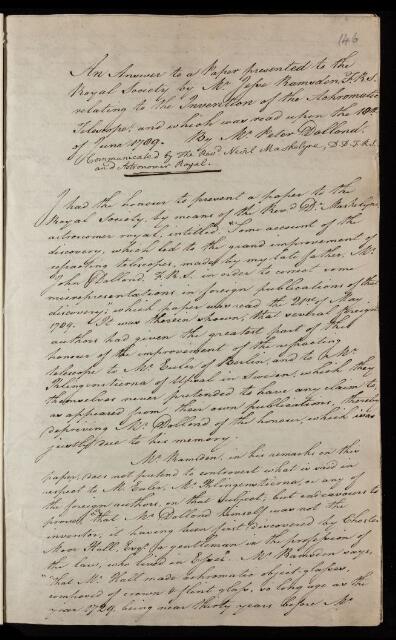 146
An Answer to a Paper presented to the
Royal Society by Mr. Jesse Ramsden, F.R.S.
relating to the Invention of the Achromatic
Telescope, and which was read upon the
of June 1789. By Mr. Peter Dollond.
Communicated by the Revd. Nevil Maskelyne, D.D. F.R.S.
and Astronomer Royal.
I had the honour to present a paper to the
Royal Society, by means of the Revd. Dr. Maskelyne
astronomer royal, intitled, "Some account of the
discovery, which led to the grand improvement of
refracting telescopes, made by my late father, Mr.
John Dollond, F.R.S. in order to correct some
misrepresentations in foreign publications of that
discovery"; which paper was read the 21st. of May
1789. It was therein shown, that several foreign
authors had given the greatest part of the
honour of the improvement of the refracting
telescope to Mr. Euler of Berlin, and to Mr.
Klingenstierna of Upsal in Sweden, which they
themselves never pretended to have any claim to,
as appeared from their own publications, thereby
depriving Mr. Dollond of the honour, which was
justly due to his memory.
Mr. Ramsden, in his remarks on this
paper, does not pretend to controvert what is said in
respect to M. Euler, Mr. Klingenstierna, or any of
the foreign authors, on that subject; but endeavours to
prove, "that Mr. Dollond himself was not the
inventor, it having been first discovered by Chester
Moor Hall, Esqr. (a gentleman in the profession of
the law, who lived in Essex". Mr. Ramsden says,
"that Mr. Hall made achromatic object glasses,
composed of crown & flint glass, so long ago as the
year 1729, being near thirty years before Mr.